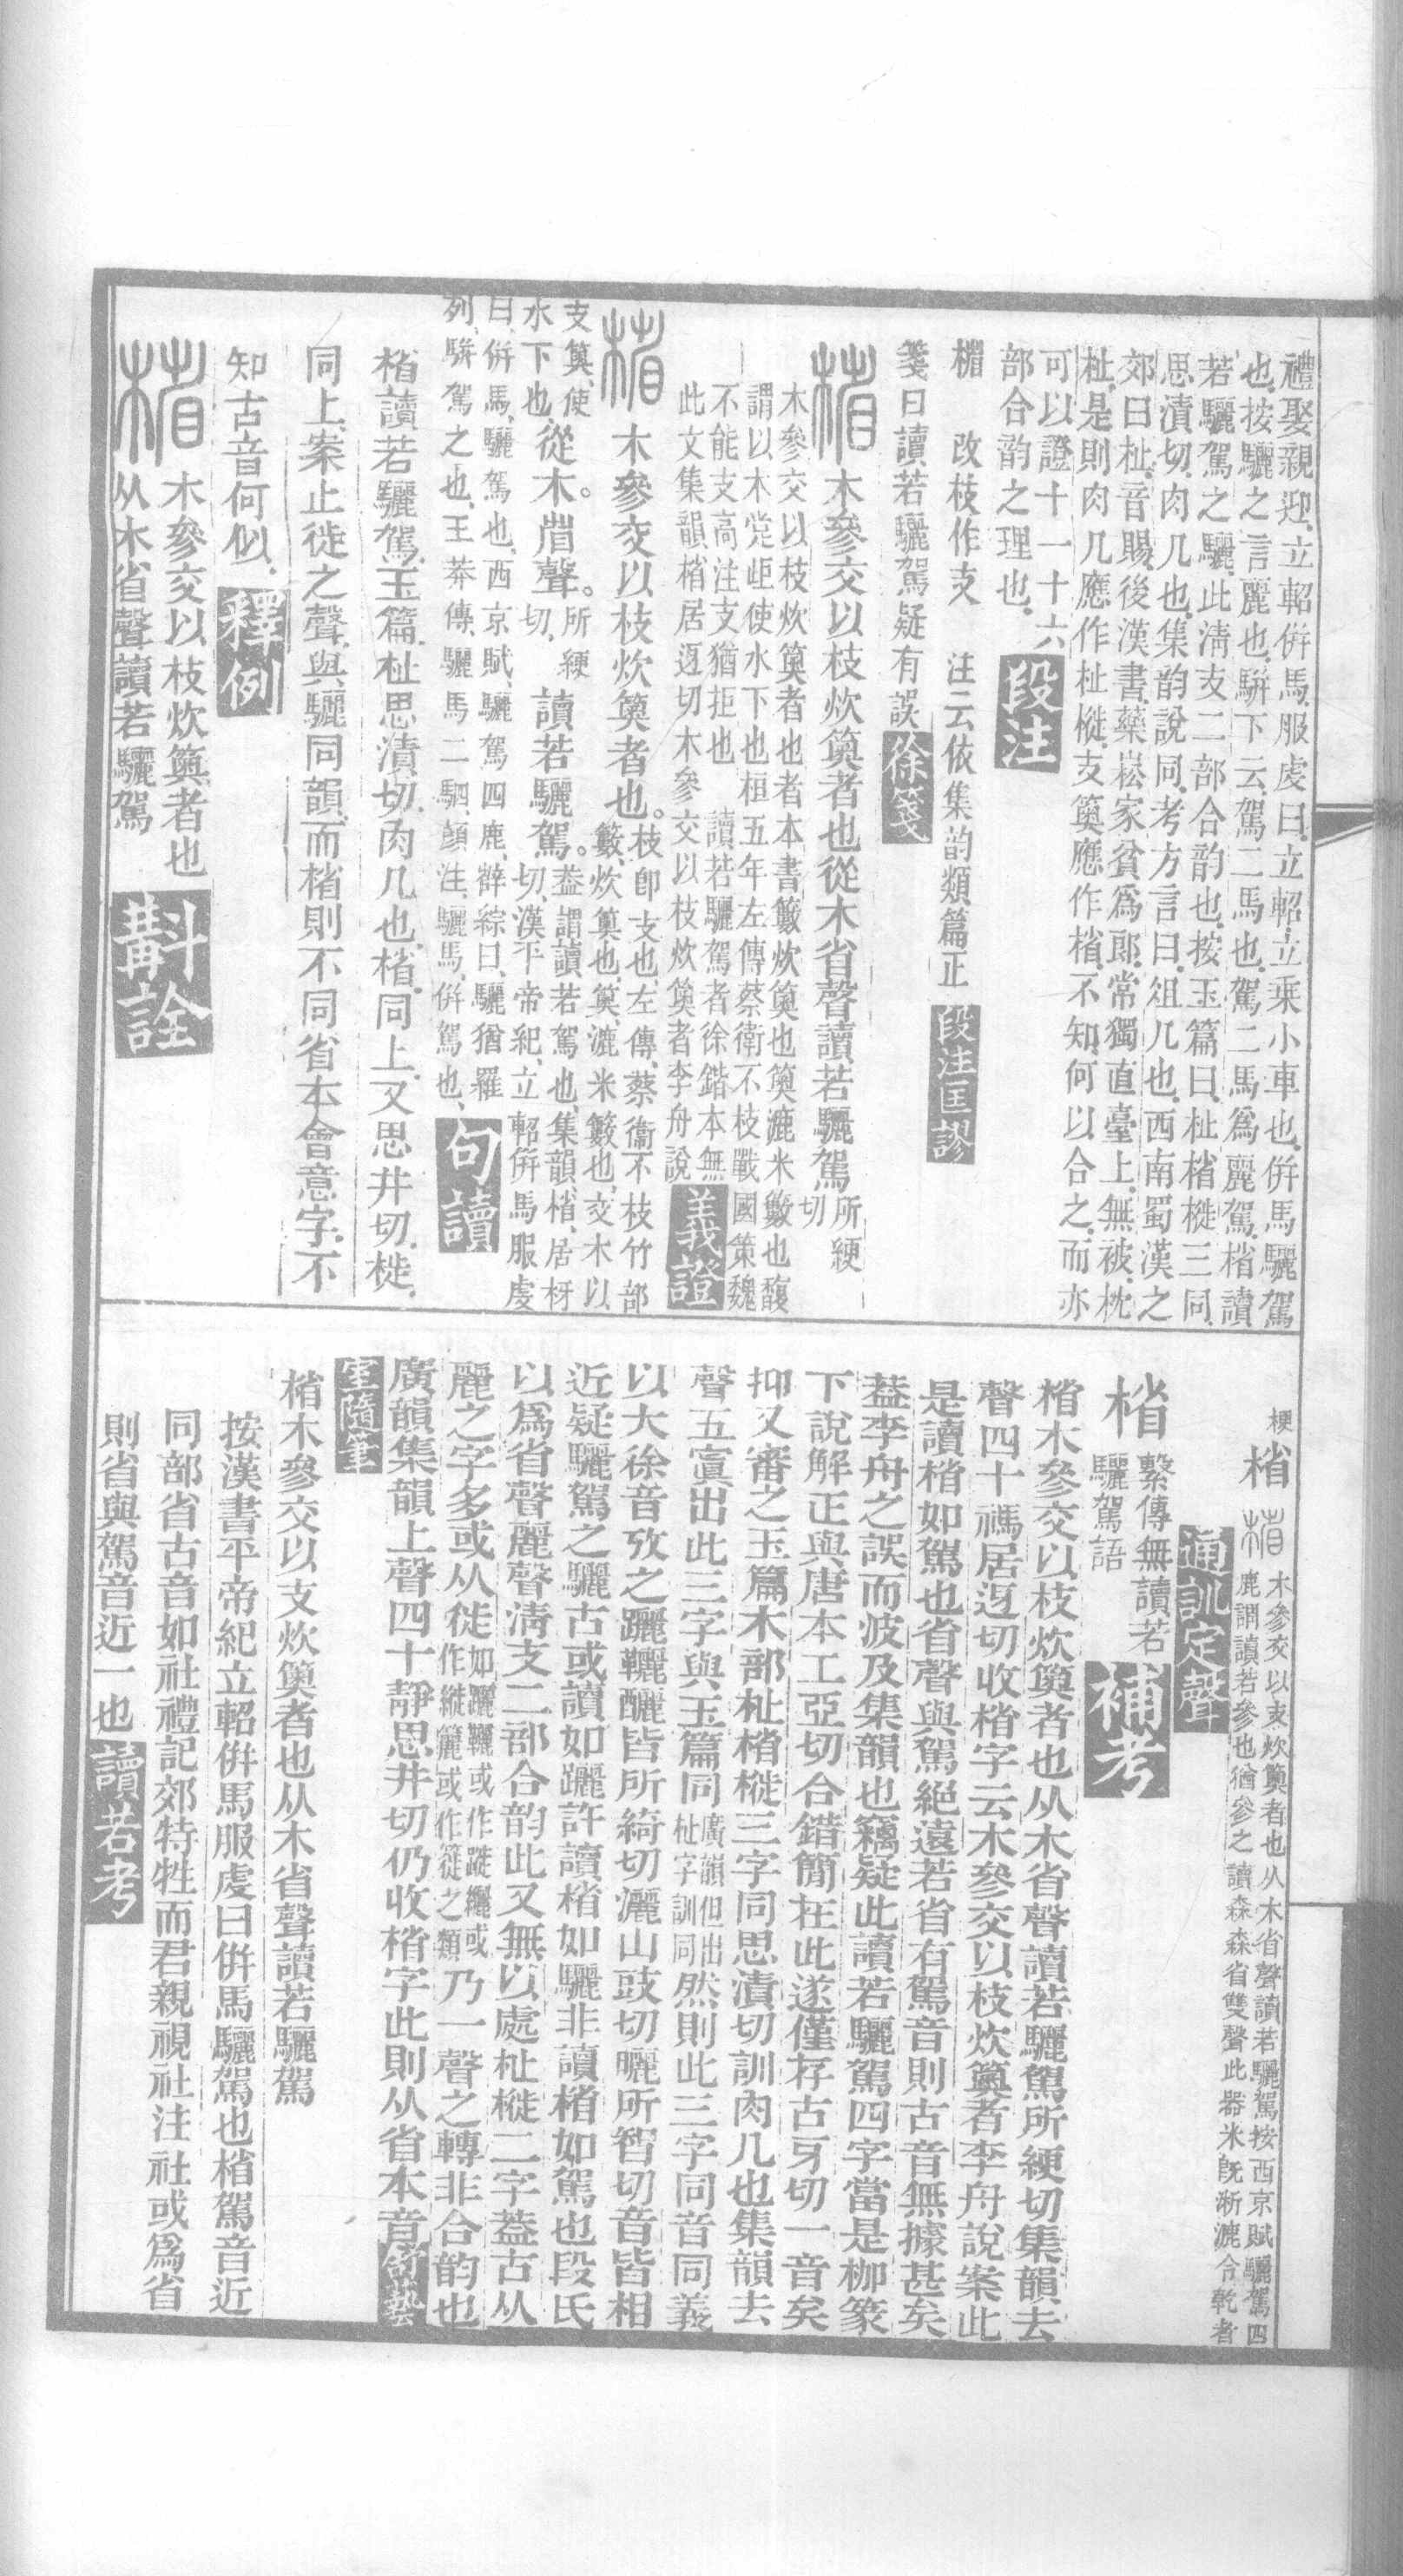 禮娶親迎、立軺倂馬、服虔曰、立軺、立乘小車也、倂馬驪駕
也、按驪之言麗也、騈下云、駕二馬也、駕二馬爲麗駕、㮐讀
若驪駕之驪、此淸支二部合韵也、按玉篇曰、杫㮐樅三同、
思漬切、肉几也、集韵說同、考方言曰、俎几也、西南蜀漢之
郊曰杫、音賜、後漢書藥崧家貧爲郎、常獨直臺上、無被、枕
杫、是則肉几應作杫樅、支䉛應作㮐、不知何以合之、而亦
可以證十一十六
部合韵之理也、段注
㮐 改枝作支 注云依集韵類篇正 段注匡謬
箋曰讀若驪駕疑有誤 徐箋
㮐 木參交以枝炊䉛者也從木省聲讀若驪駕 所綆切
木參交以枝炊䉛者也者本書籔炊䉛也䉛漉米籔也馥
謂以木定岠使水下也桓五年左傳蔡衞不枝戰國策魏
不能支高注支猶拒也 讀若驪駕者徐鍇本無
此文集韻㮐居迓切木參交以枝炊䉛者李舟說 義證
㮐 木參交以枝炊䉛者也。枝卽支也、左傳、蔡衞不枝、竹部
籔、炊䉛也、䉛、漉米籔也、交木以
支䉛、使
水下也、從木。㾪聲。所綆切、讀若驪駕。葢謂讀若駕也、集韻、㮐、居枒
切、漢平帝紀、立軺倂馬、服虔
曰、倂馬、驪駕也、西京賦、驪駕四鹿、薛綜曰、驪猶羅
列、騈駕之也、王莽傳、驪馬二駟、顏注、驪馬、倂駕也、句讀
㮐讀若驪駕、玉篇、杫思漬切、肉几也、㮐、同上、又思井切、樅、
同上、案止徙之聲、與驪同韻、而㮐則不同、省本會意字、不
知古音何似、釋例
㮐 木參交以枝炊䉛者也
从木省聲讀若驪駕 斠詮
梗 㮐 木參交以支炊䉛者也从木省聲讀若驪駕按西京賦驪駕四
鹿謂讀若參也猶參之讀森森省雙聲此器米旣淅漉令乾者
通訓定聲
㮐 繫傳無讀若
驪駕語 補考
㮐木參交以枝炊䉛者也从木省聲讀若驪駕所綆切集韻去
聲四十禡居迓切收㮐字云木參交以枝炊䉛者李舟說案此
是讀㮐如駕也省聲與駕絕遠若省有駕音則古音無據甚矣
葢李舟之誤而波及集韻也竊疑此讀若驪駕四字當是枷篆
下說解正與唐本工亞切合錯簡在此遂僅存古牙切一音矣
抑又審之玉篇木部杫㮐樅三字同思漬切訓肉几也集韻去
聲五寘出此三字與玉篇同廣韻但出
杫字訓同然則此三字同音同義
以大徐音攷之躧韉釃皆所綺切灑山豉切曬所智切音皆相
近疑驪駕之驪古或讀如躧許讀㮐如驪非讀㮐如駕也段氏
以爲省聲麗聲淸支二部合韵此又無以處杫樅二字葢古从
麗之字多或从徙如躧韉或作蹝纚或
作縰簏或作簁之類乃一聲之轉非合韵也
廣韻集韻上聲四十靜思井切仍收㮐字此則从省本音 舒藝
室隨筆
㮐木參交以支炊䉛者也从木省聲讀若驪駕
按漢書平帝紀立軺倂馬服虔曰倂馬驪駕也㮐駕音近
同部省古音如社禮記郊特牲而君親視社注社或爲省
則省與駕音近一也 讀若考